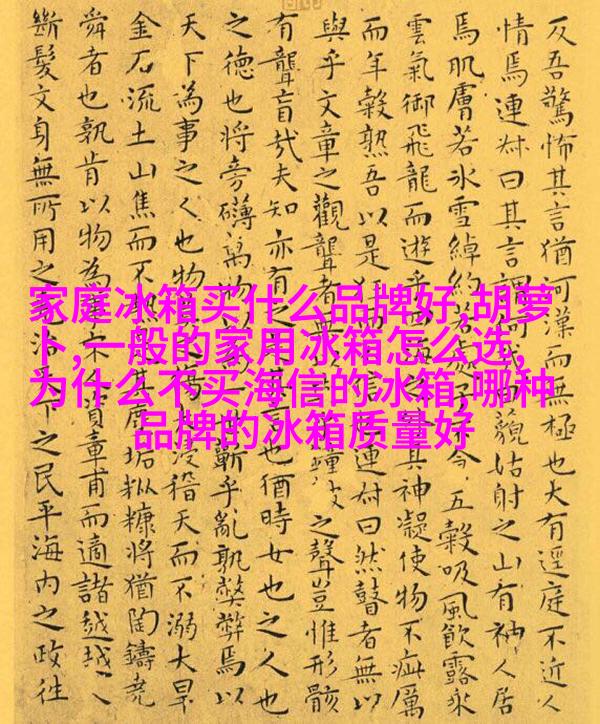 反吾驚怖其言猶河漢而無極也大有逕庭不近人
情焉連叔曰其言謂何哉曰藐姑射之山有神人居
焉肌膚若冰雪綽約若處子五穀吸風飲露乘
雲氣御飛龍而遊乎四海之外其神凝使物不疵厲
而年穀熟吾以是狂信連叔曰然瞽者無以
與乎文章之觀聾者無以之聲豈惟形骸
有聾盲哉夫知亦有之言也猶時女也之人也
之德也將旁礴萬物世蘄乎亂孰弊弊焉以
天下為事之人也物大浸稽天而不溺大旱
金石流土山焦而不熱塵垢粃糠將猶陶鑄堯
舜者也孰肯以物為宋資章甫而適諸越越人
斷髮文身無所用之堯治天下之民平海內之政往
家庭冰箱买什么品牌好,胡萝
卜,一般的家用冰箱怎么选,
为什么不买海信的冰箱,哪种
品牌的冰箱质量好